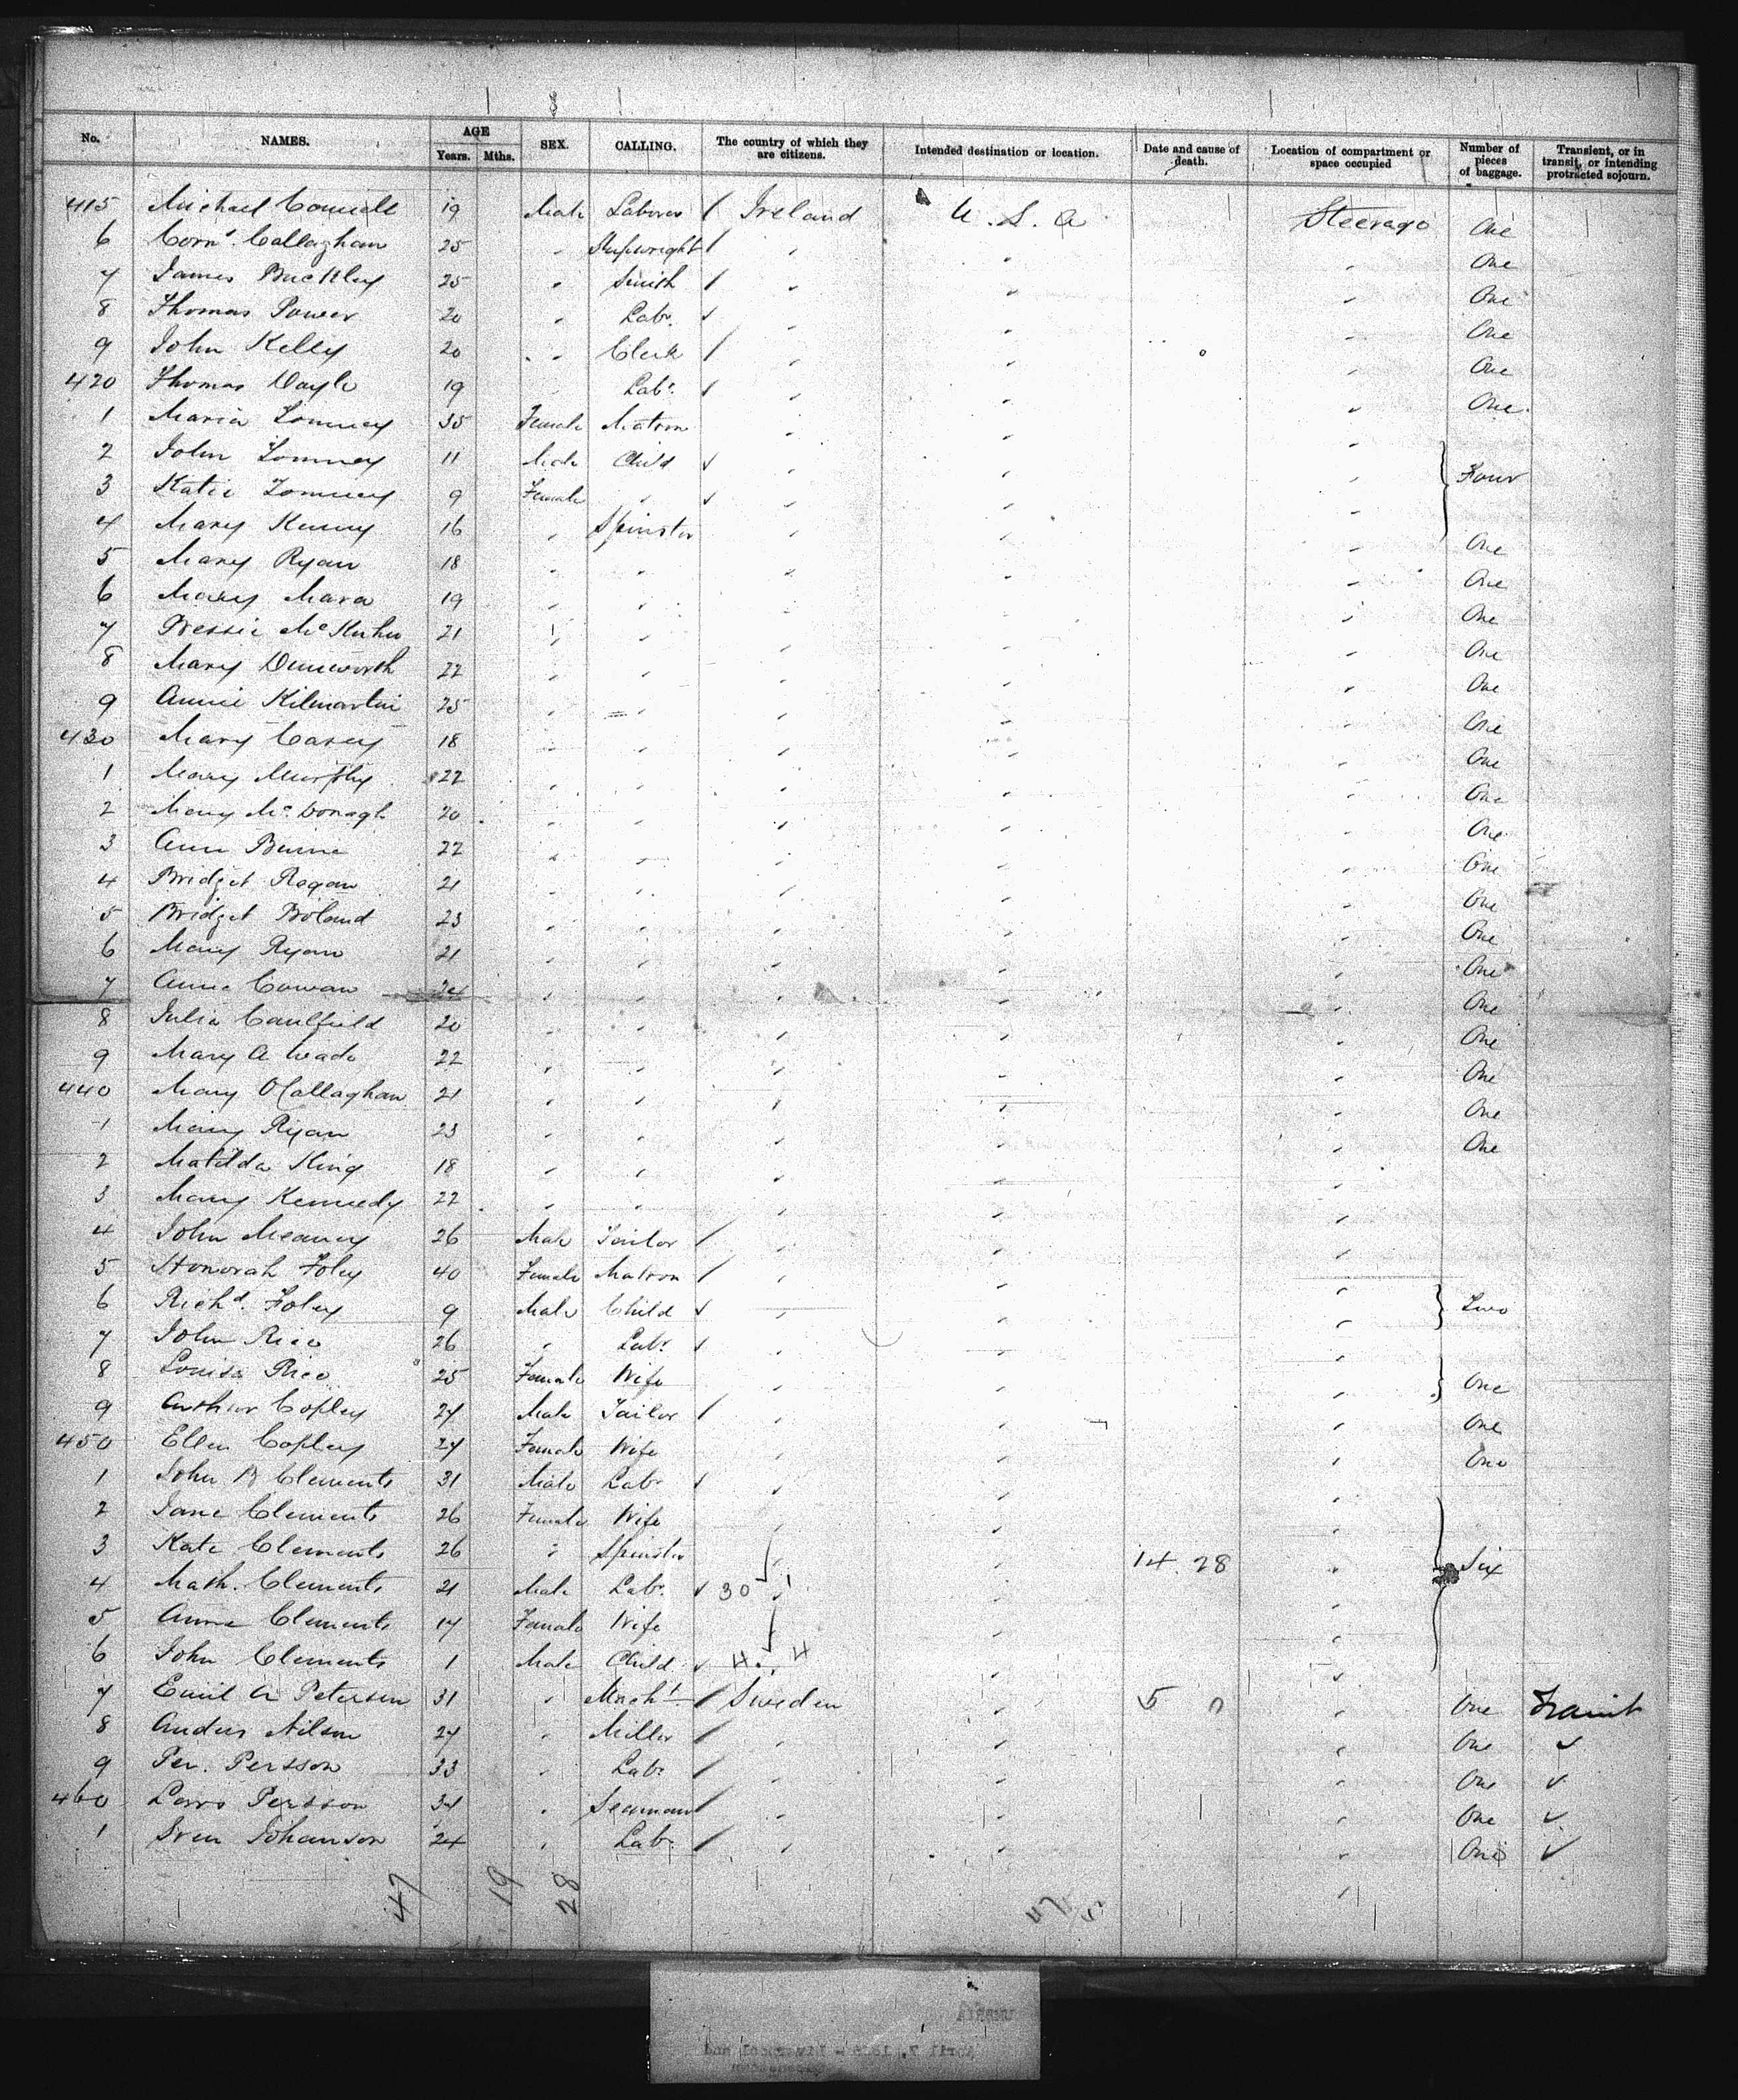 No. NAMES. AGE Years. Mths. SEX. CALLING. The country of which they are citizens. Intended destination or location. Date and cause of death. Location of compartment or space occupied Number of pieces of baggage. Transient, or in transit, or intending protracted sojourn.
415 Michael Connell 19 Male Laborer Ireland U. S. A Steerage One
6 Corns. Callaghan 25 " Shipwright " " " One
7 James Buckley 25 " Smith " " " One
8 Thomas Power 20 " Labr. " " " One
9 John Kelly 20 " Clerk " " " One
420 Thomas Doyle 19 Labr. " " " One
1 Maria 35 Female Matron " " "
2 John 11 Male Child " " " Four
3 Katie 9 Female " " " "
4 Mary Kenny 16 " Spinster " " " One
5 Mary Ryan 18 " " " " " One
6 Mary Mara 19 " " " " " One
7 Bessie 21 " " " " " One
8 Mary Dunworth 22 " " " " " One
9 Annie Kilmartin 25 " " " " " One
430 Mary Casey 18 " " " " " One
1 Mary Murphy 22 " " " " " One
2 Mary McDonagh 20 " " " " " One
3 Ann 22 " " " " " One
4 Bridget Regan 21 " " " " " One
5 Bridget Boland 23 " " " " " One
6 Mary Ryan 21 " " " " " One
7 Anne Cowan 24 " " " " " One
8 Julia Caulfield 20 " " " " " One
9 Mary A Wade 22 " " " " " One
440 Mary O'Callaghan 21 " " " " " One
1 Mary Ryan 23 " " " " " One
2 Matilda King 18 " " " " "
3 Mary Kennedy 22 " " " " "
4 John Meaney 26 Male Tailor " " "
5 Honorah Foley 40 Female Matron " " "
6 Richd. Foley 9 Male Child " " " Two
7 John Rice 26 " Labr. " " "
8 Louisa Rice 25 Female Wife " " " One
9 Arthur Copley 24 Male Tailor " " " One
450 Ellen Copley 24 Female Wife " " " One
1 John B Clements 31 Male Labr " " "
2 Jane Clements 26 Female Wife " " "
3 Kate Clements 26 " Spinster " " 14 28 " Six
4 Math. Clements 21 Male Labr. 30 " "
5 Anne Clements 17 Female Wife " " "
6 John Clements 1 Male Child 4 4 " "
7 Emil A Peterson 31 " Macht. Sweden " 5 0 " One Transit
8 Anders Nilson 27 " Miller " " " One ✓
9 Per. Persson 33 " Labr. " " " One ✓
460 Lars Persson 34 " Seaman " " " One ✓
1 Sven Johanson 24 " Labr. " " " One ✓
47 19 28 47 5